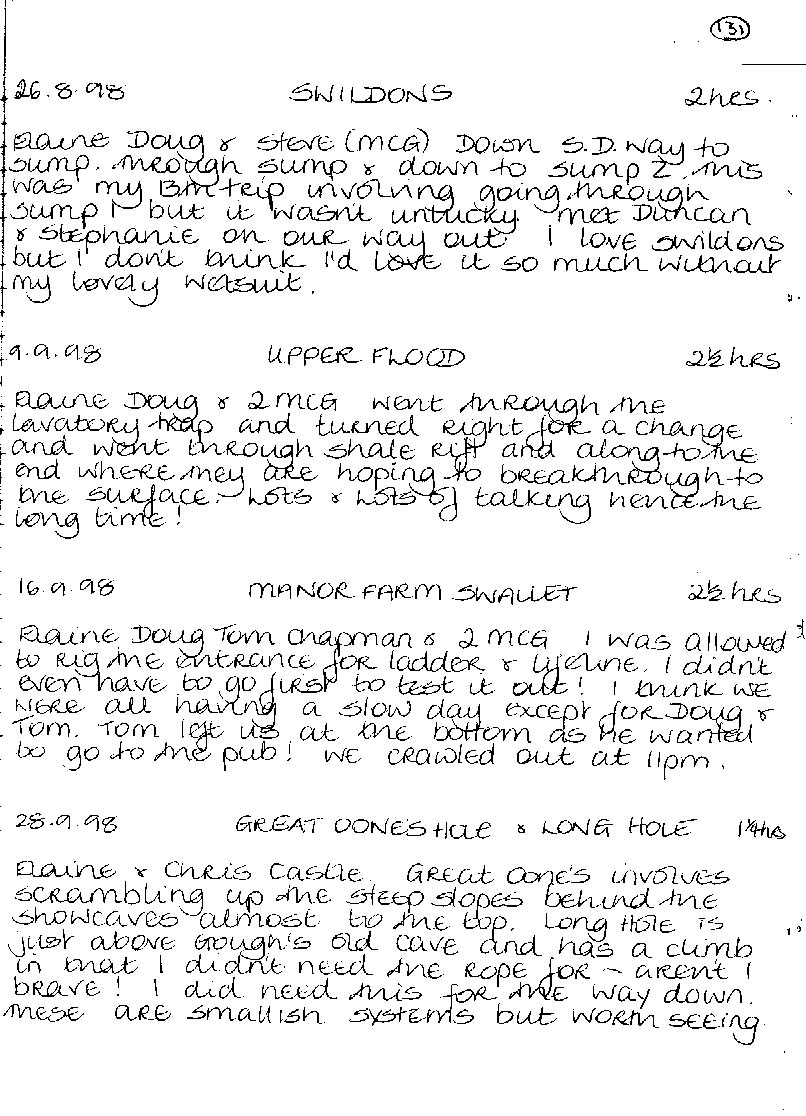 131
26.8.98 SWILDONS 2hrs.
Elaine Doug & Steve (MCG) Down S.D. way to
sump. Through sump & down to sump 2. This
was my 13th trip involving going through
sump 1 but it wasn't unlucky. Met Duncan
& Stephanie on our way out. I love Swildons
but I don't think I'd love it so much without
my lovely wetsuit.
9.9.98 UPPER FLOOD 2½ hrs
Elaine Doug & 2 MCG went through the
lavatory trap and turned right for a change
and went through shale rift and along to the
end where they are hoping to breakthrough to
the surface. Lots & Lots of talking hence the
long time!
16.9.98 MANOR FARM SWALLET 2½ hrs
Elaine Doug Tom Chapman & 2 MCG I was allowed
to rig the entrance for ladder & lifeline. I didn't
even have to go first to test it out! I think we
were all having a slow day except for Doug &
Tom. Tom left us at the bottom as he wanted
to go to the pub! We crawled out at 11pm.
28.9.98 GREAT OONE'S HOLE & LONG HOLE 1¼hrs
Elaine & Chris Castle. Great Oone's involves
scrambling up the steep slopes behind the
showcaves almost to the top. Long Hole is
just above Gough's Old Cave and has a climb
in that I didn't need the rope for - arent I
brave! I did need this for the way down.
These are smallish systems but worth seeing.